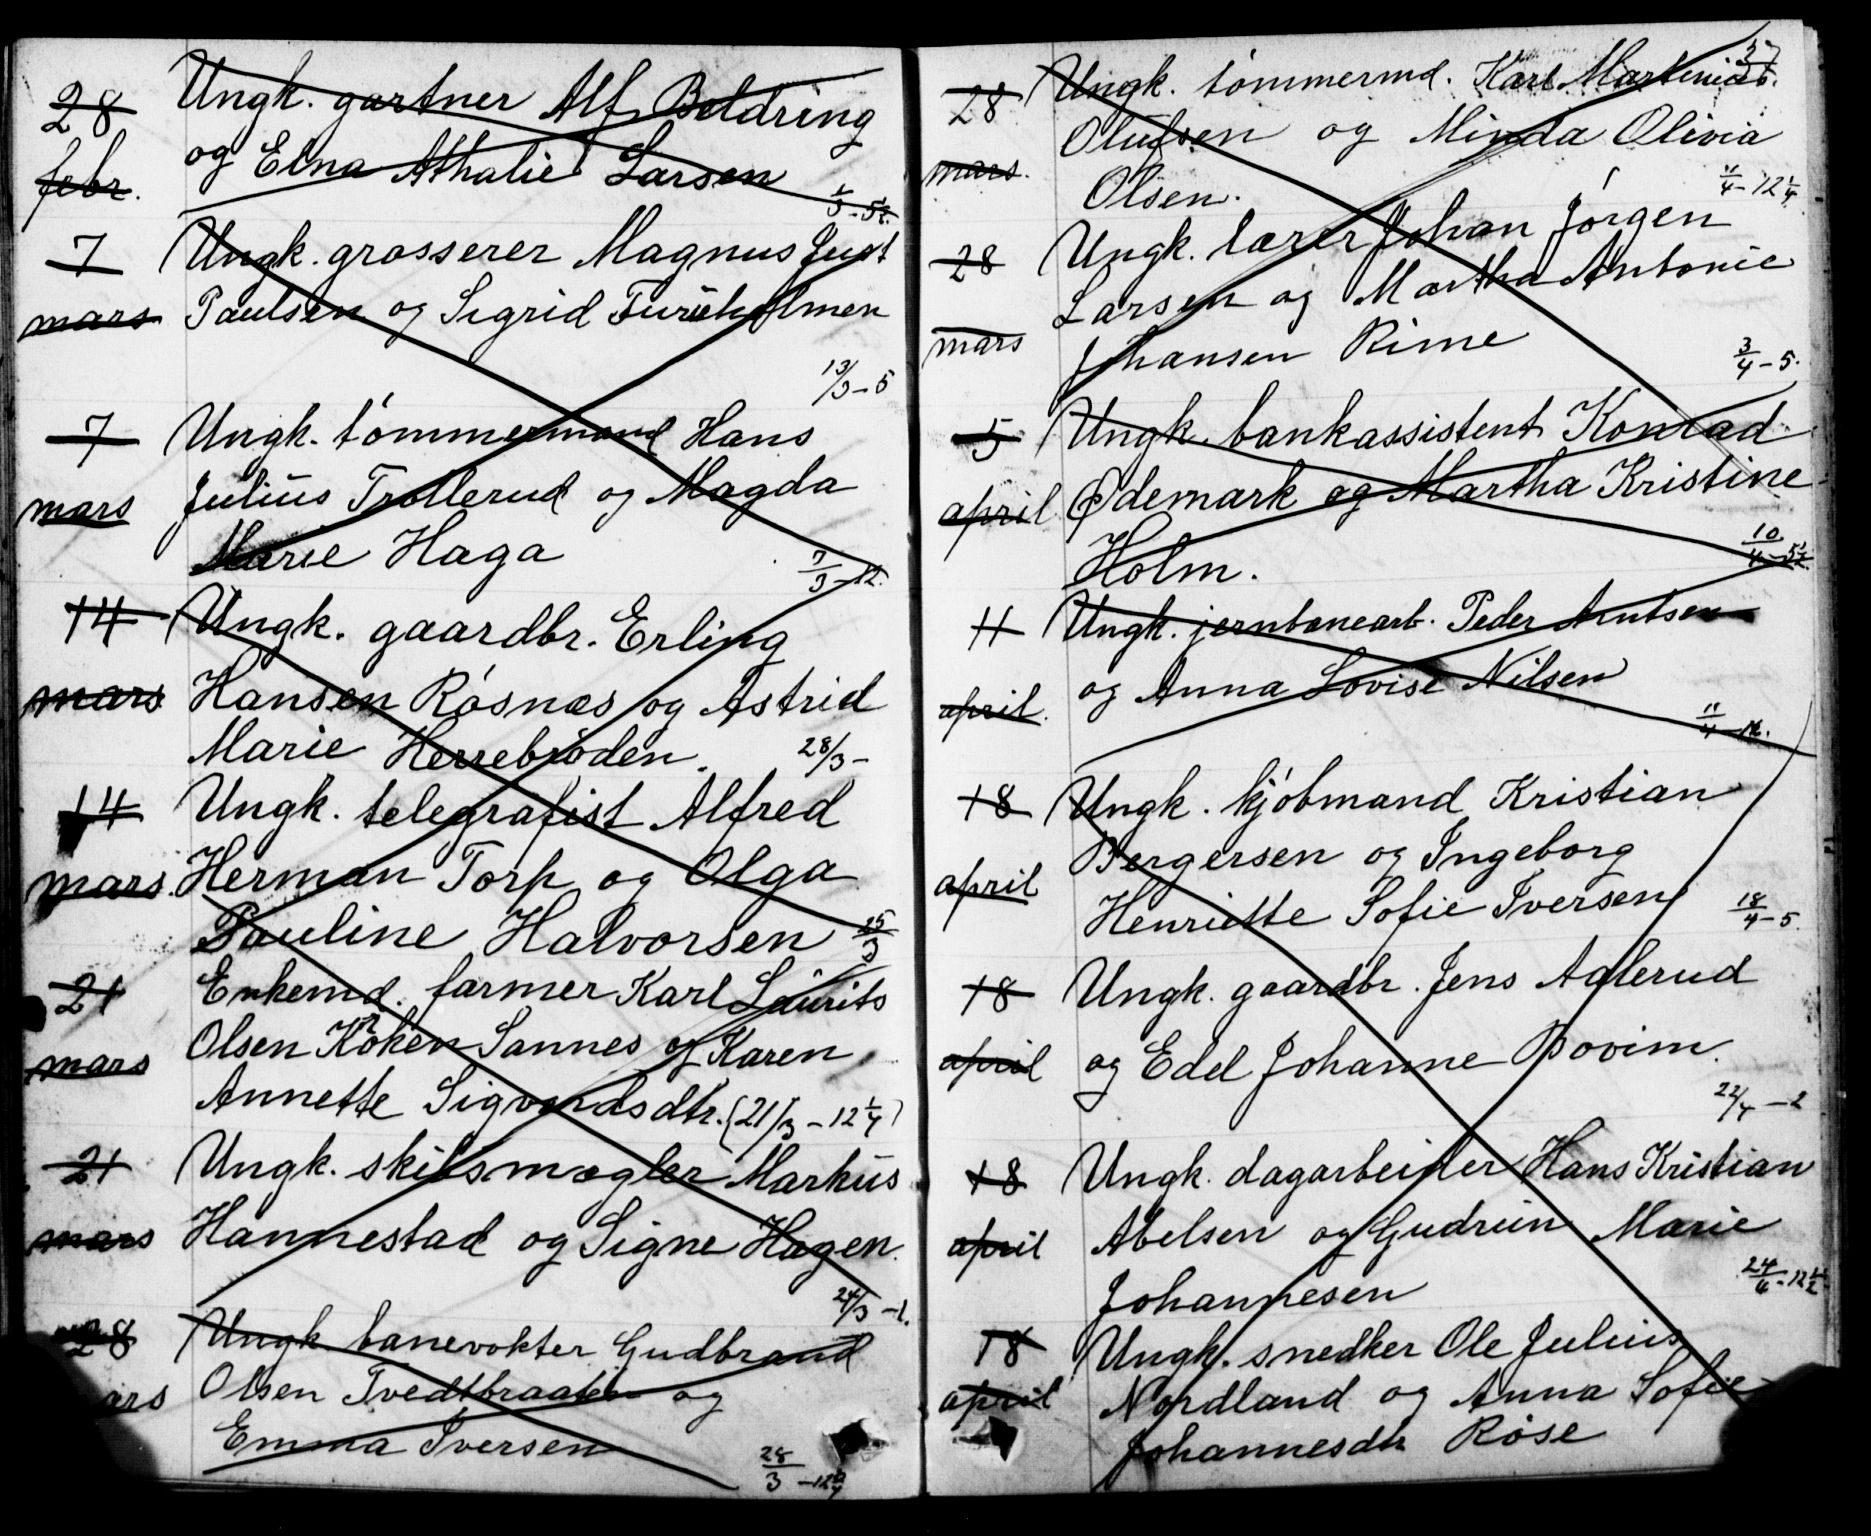 28 Ungk. gartner Alf Boldring
febr. og Elna Athalie Larsen
5½.
7 Ungk. grosserer Magnus Just
mars Paulsen og Sigrid Furuholmen
13/3 – 5
7 Ungk. tómmermand Hans
mars Julius Trollerud og Magda
Marie Haga 7/3 – 12.
14 Ungk. gaardbr. Erling
mars Hansen Rósnæs og Astrid
Marie Herrebróden. 28/3 –
14 Ungk. telegrafist Alfred
mars. Herman Torp og Olga
Pauline Halvorsen 15/3
21 Enkemd. farmer Karl Laurits
mars Olsen Sannes og Karen
Annette Sigvardsdtr. (21/3 – 12¼)
21 Ungk. skibsmægler Markus
mars Hannestad og Signe Hagen.
24/3 – 1.
28 Ungk. banevokter Gudbrand
mars Olsen Tvedtbraaten og
Emma Iversen
28/3 – 12
28 Ungk. tómmermd. Karl Martinius
mars. Olufsen og Minda Olivia
Olsen. 11/4 – 12¼
28 Ungk. lærer Johan Jórgen
mars Larsen og Martha Antonie
Johansen Rime 3/4 – 5.
5 Ungk. bankassistent Konrad
april Ødemark og Martha Kristine
Holm. 10/4 – 5½.
11 Ungk. jernbanearb. Peder Arntsen
april. og Anna Lovise Nilsen
11/4 – 12.
18 Ungk. kjóbmand Kristian
april Bergersen og Ingeborg
Henriette Sofie Iversen 18/4 – 5.
18 Ungk. gaardbr. Jens Aglerud
april og Edel Johanne Bovim.
22/4 – 2
18 Ungk. dagarbeider Hans Kristian
april Abelsen og Gudrun Marie
Johannesen 24/4 – 12½
18 Ungk. snedker Ole Julius
april Nordland og Anna Sofie
Johannesdtr Róse